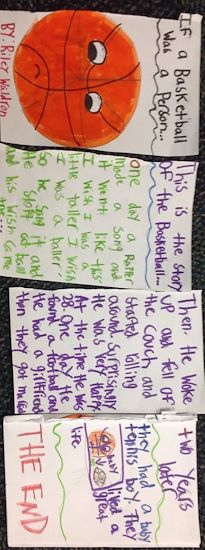 If a Basketball
Was a Person...
BY: Riley Waldron
This is the story
Of the Basketball...
One day a Raper
made a song and
it went like this
I wish I was a
little taller I wish
I was a baller
so he sang it and
He slept at ball
and his wish came
Then He woke
up and fell of
the couch and
started rolling
around surprisingly
He was very happy
At the time He was
28 One day He
found a football and
He had a girlfriend
then they got married
two Years
later
they had a baby
tennis boy. They
lived a
great
life.
THE END